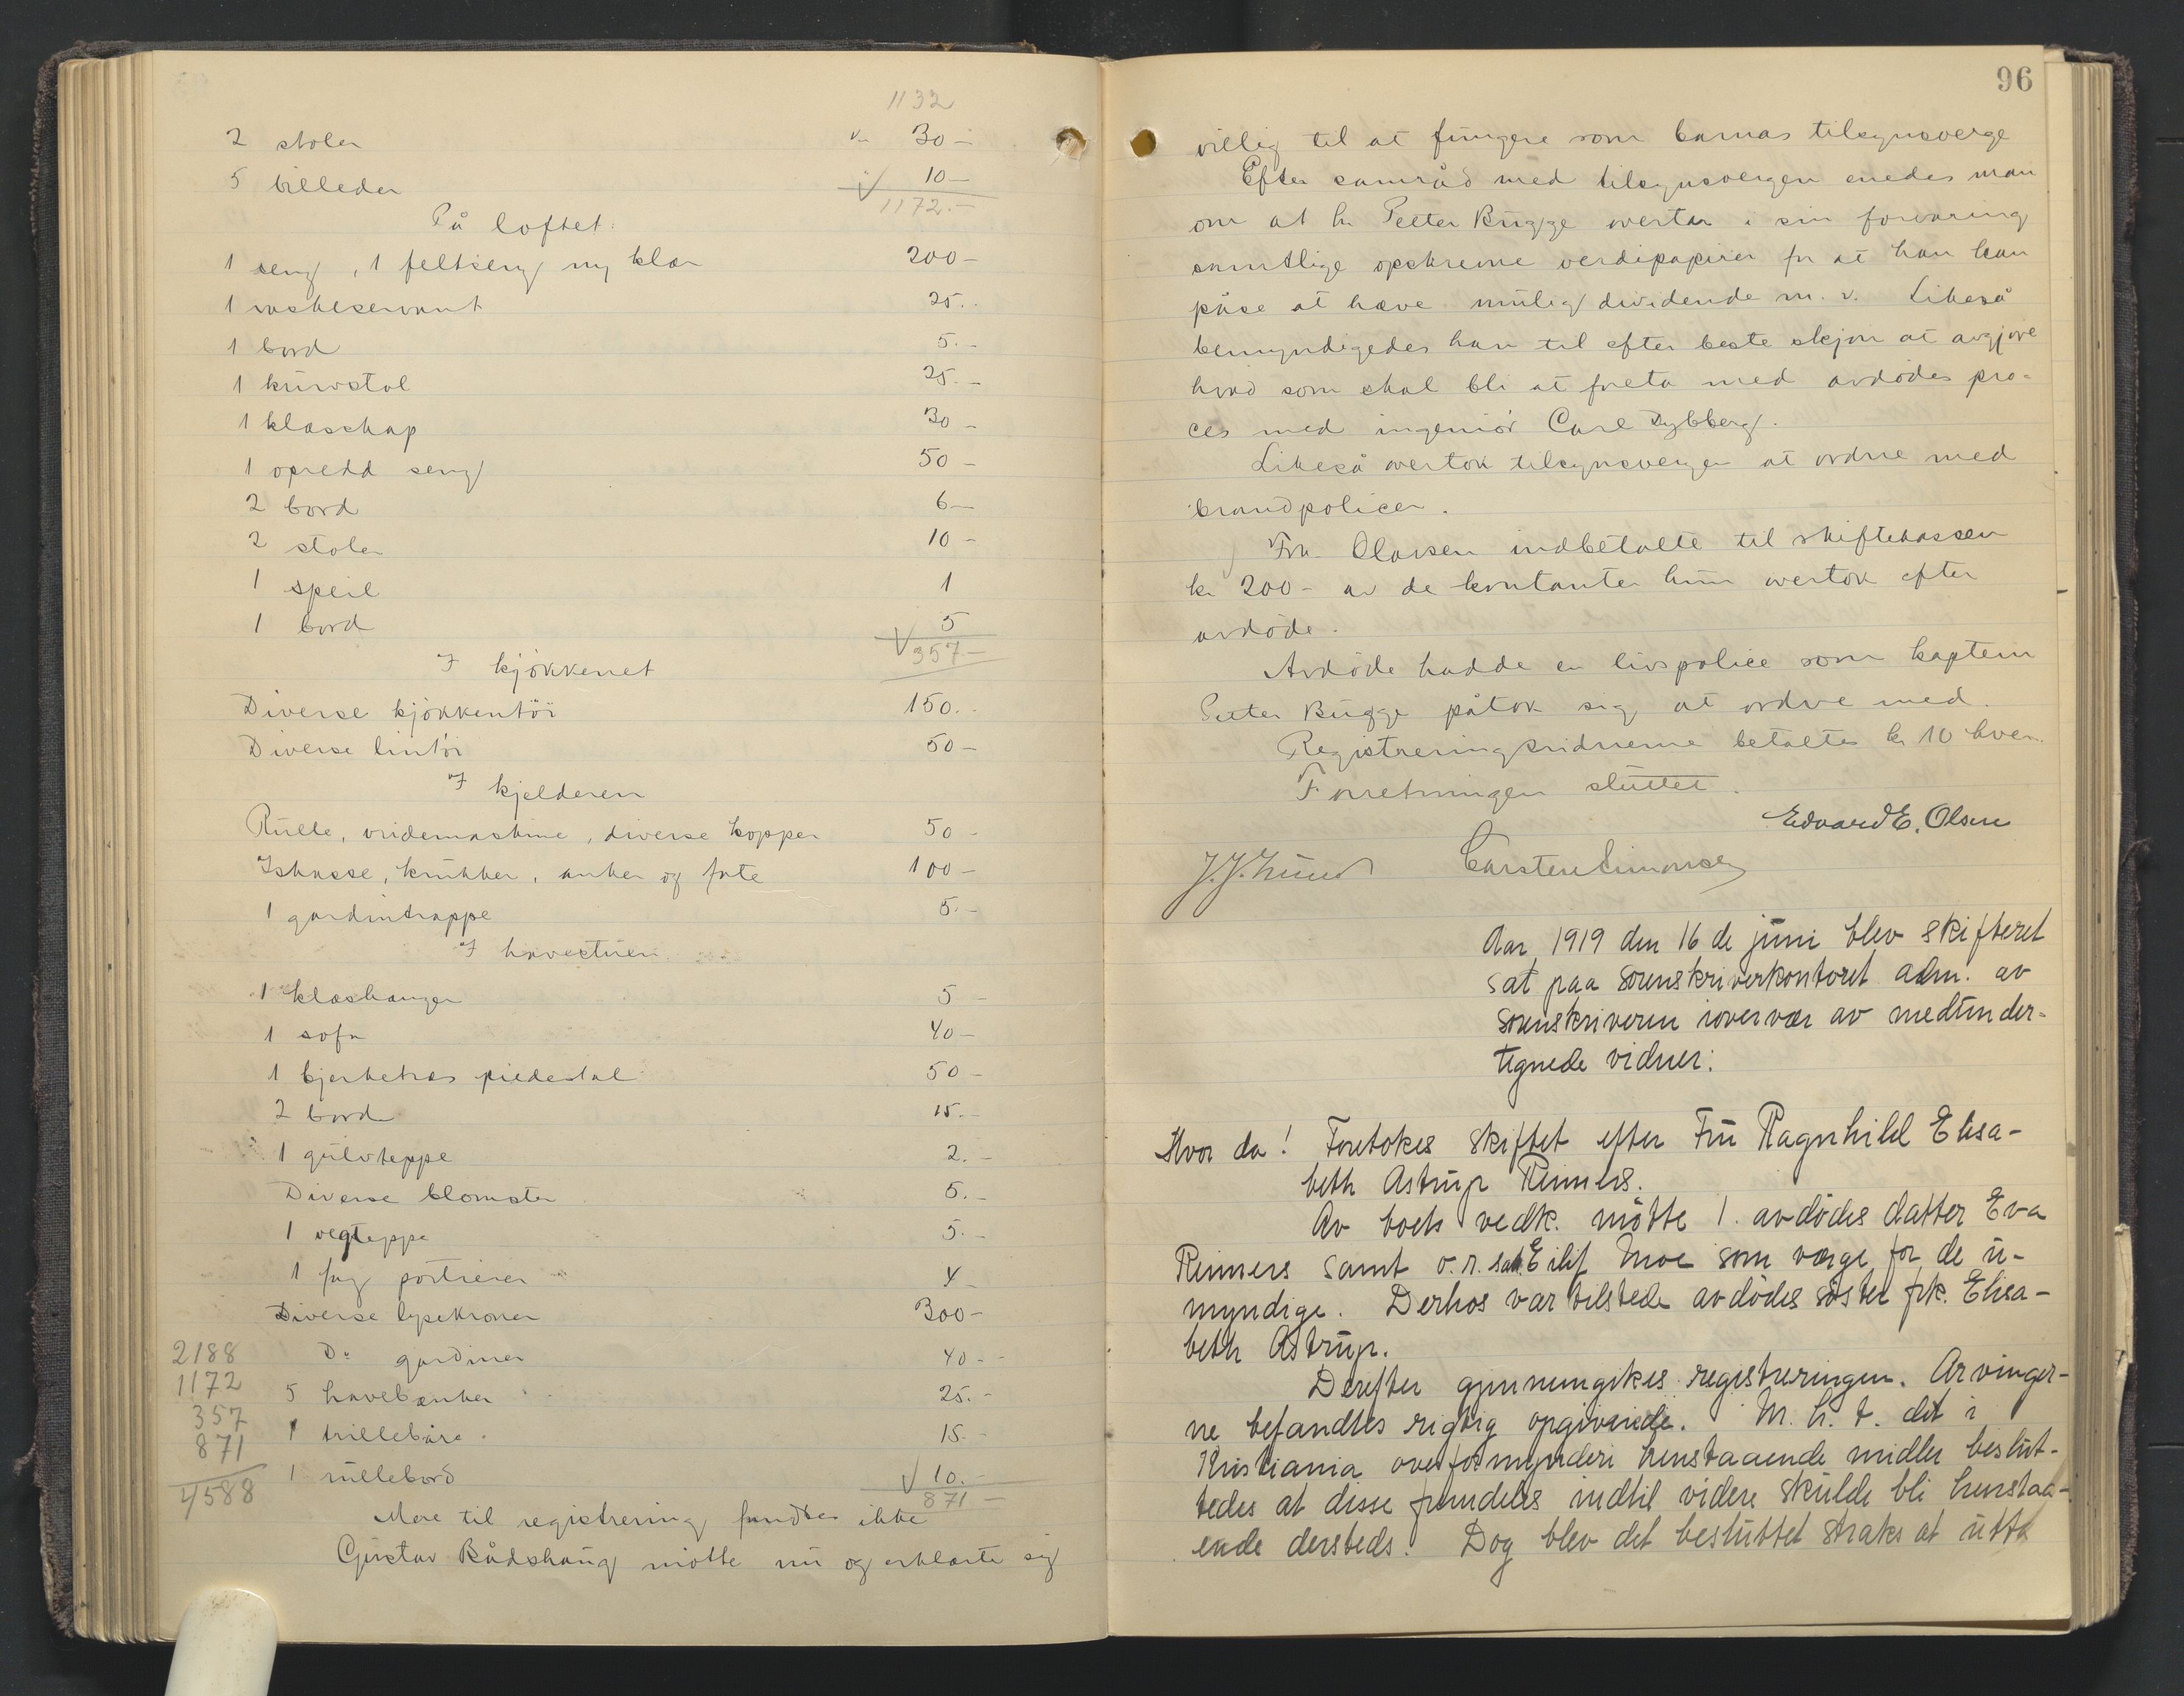 1132
2 stoler " 30 -
5 billeder 10 -
1172.-
På loftet:
1 seng, 1 feltseng m/ klær 200 -
1 vaskeservant 25.-
1 bord 5.-
1 kurvstol 25.-
1 klæsskap 30 -
1 opredd seng 50 -
2 bord 6 -
2 stoler 10 -
1 speil 1
1 bord 5
357.-
I kjøkkenet
Diverse kjøkkentöi 150.-
Diverse lintöi 50 -
I kjelderen
Rulle, vridemaskine, diverse kopper 50 -
Iskasse, krukker, anker og fate 100 -
1 gardintrappe 5.-
I havestuen
1 klæshænger 5 -
1 sofa 40 -
1 bjerketræs piedestal 50 -
2 bord 15.-
1 gulvteppe 2.-
Diverse blomster 5.-
1 vegteppe 5.-
1 fag portierer 4 -
Diverse lysekroner 300 -
Do gardiner 40 - -
5 havebænker 25.-
1 trillebåre 15 -
1 rullebord 10.-
871 -
2188
1172
357
871
4588
Mere til registrering fandtes ikke
Gustav Bådshaug møtte nu og erklærte sig
96
villig til at fungere som barnas tilsynsverge
Efter samråd med tilsynsvergen enedes man
om at hr Peter Bugge overtar i sin forvaring
samtlige opskrevne verdipapirer for at han kan
påse at hæve mulig dividende m. v. Likeså
bemyndigedes han til efter beste skjøn at avgjøre
hvad som skal bli at foreta med avdødes pro-
ces med ingeniör Carl Dybberg.
Likeså overtok tilsynsvergen at ordne med
brandpolicer.
Fru Olavsen indbetalte til skiftekassen
kr 200 - av de kontanter hun overtok efter
avdøde.
Avdøde hadde en livspolice som kaptein
Peter Bugge påtok sig at ordne med.
Registreringsvidnerne betaltes kr 10 hver.
Forretningen sluttet.
Edvard E. Olsen
J. J. Carsten Simonsen
Aar 1919 den 16 de juni blev skifteret
sat paa sorenskriverkontoret adm. av
sorenskriveren i overvær av medunder-
tegnede vidner:
Hvor da! Foretokes skiftet efter Fru Ragnhild Elisa-
beth Astrup Rimers.
Av boets vedk. møtte 1. avdødes datter Eva
Rimers samt o.r. sak. Eilif Moe som værge for de u-
myndige. Derhos var tilstede avdødes søster frk. Elisa-
beth Astrup.
Derefter gjennemgikes registreringen. Arvinger-
ne befandtes rigtig opgivende. M. h. t. det i
Kristiania overformynderi henstaaende midler beslut-
tedes at disse fremdeles indtil videre skulde bli henstaa-
ende dersteds. Dog blev det besluttet straks at utta